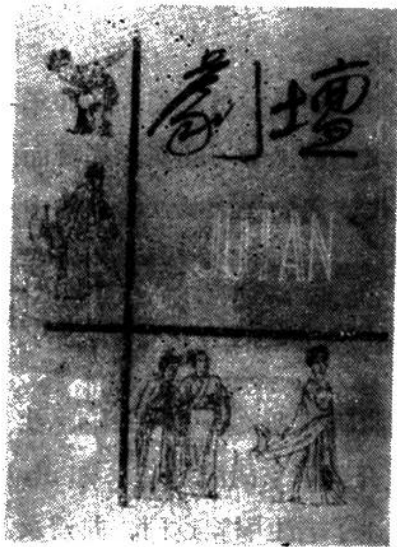 劇壇
JUTAN